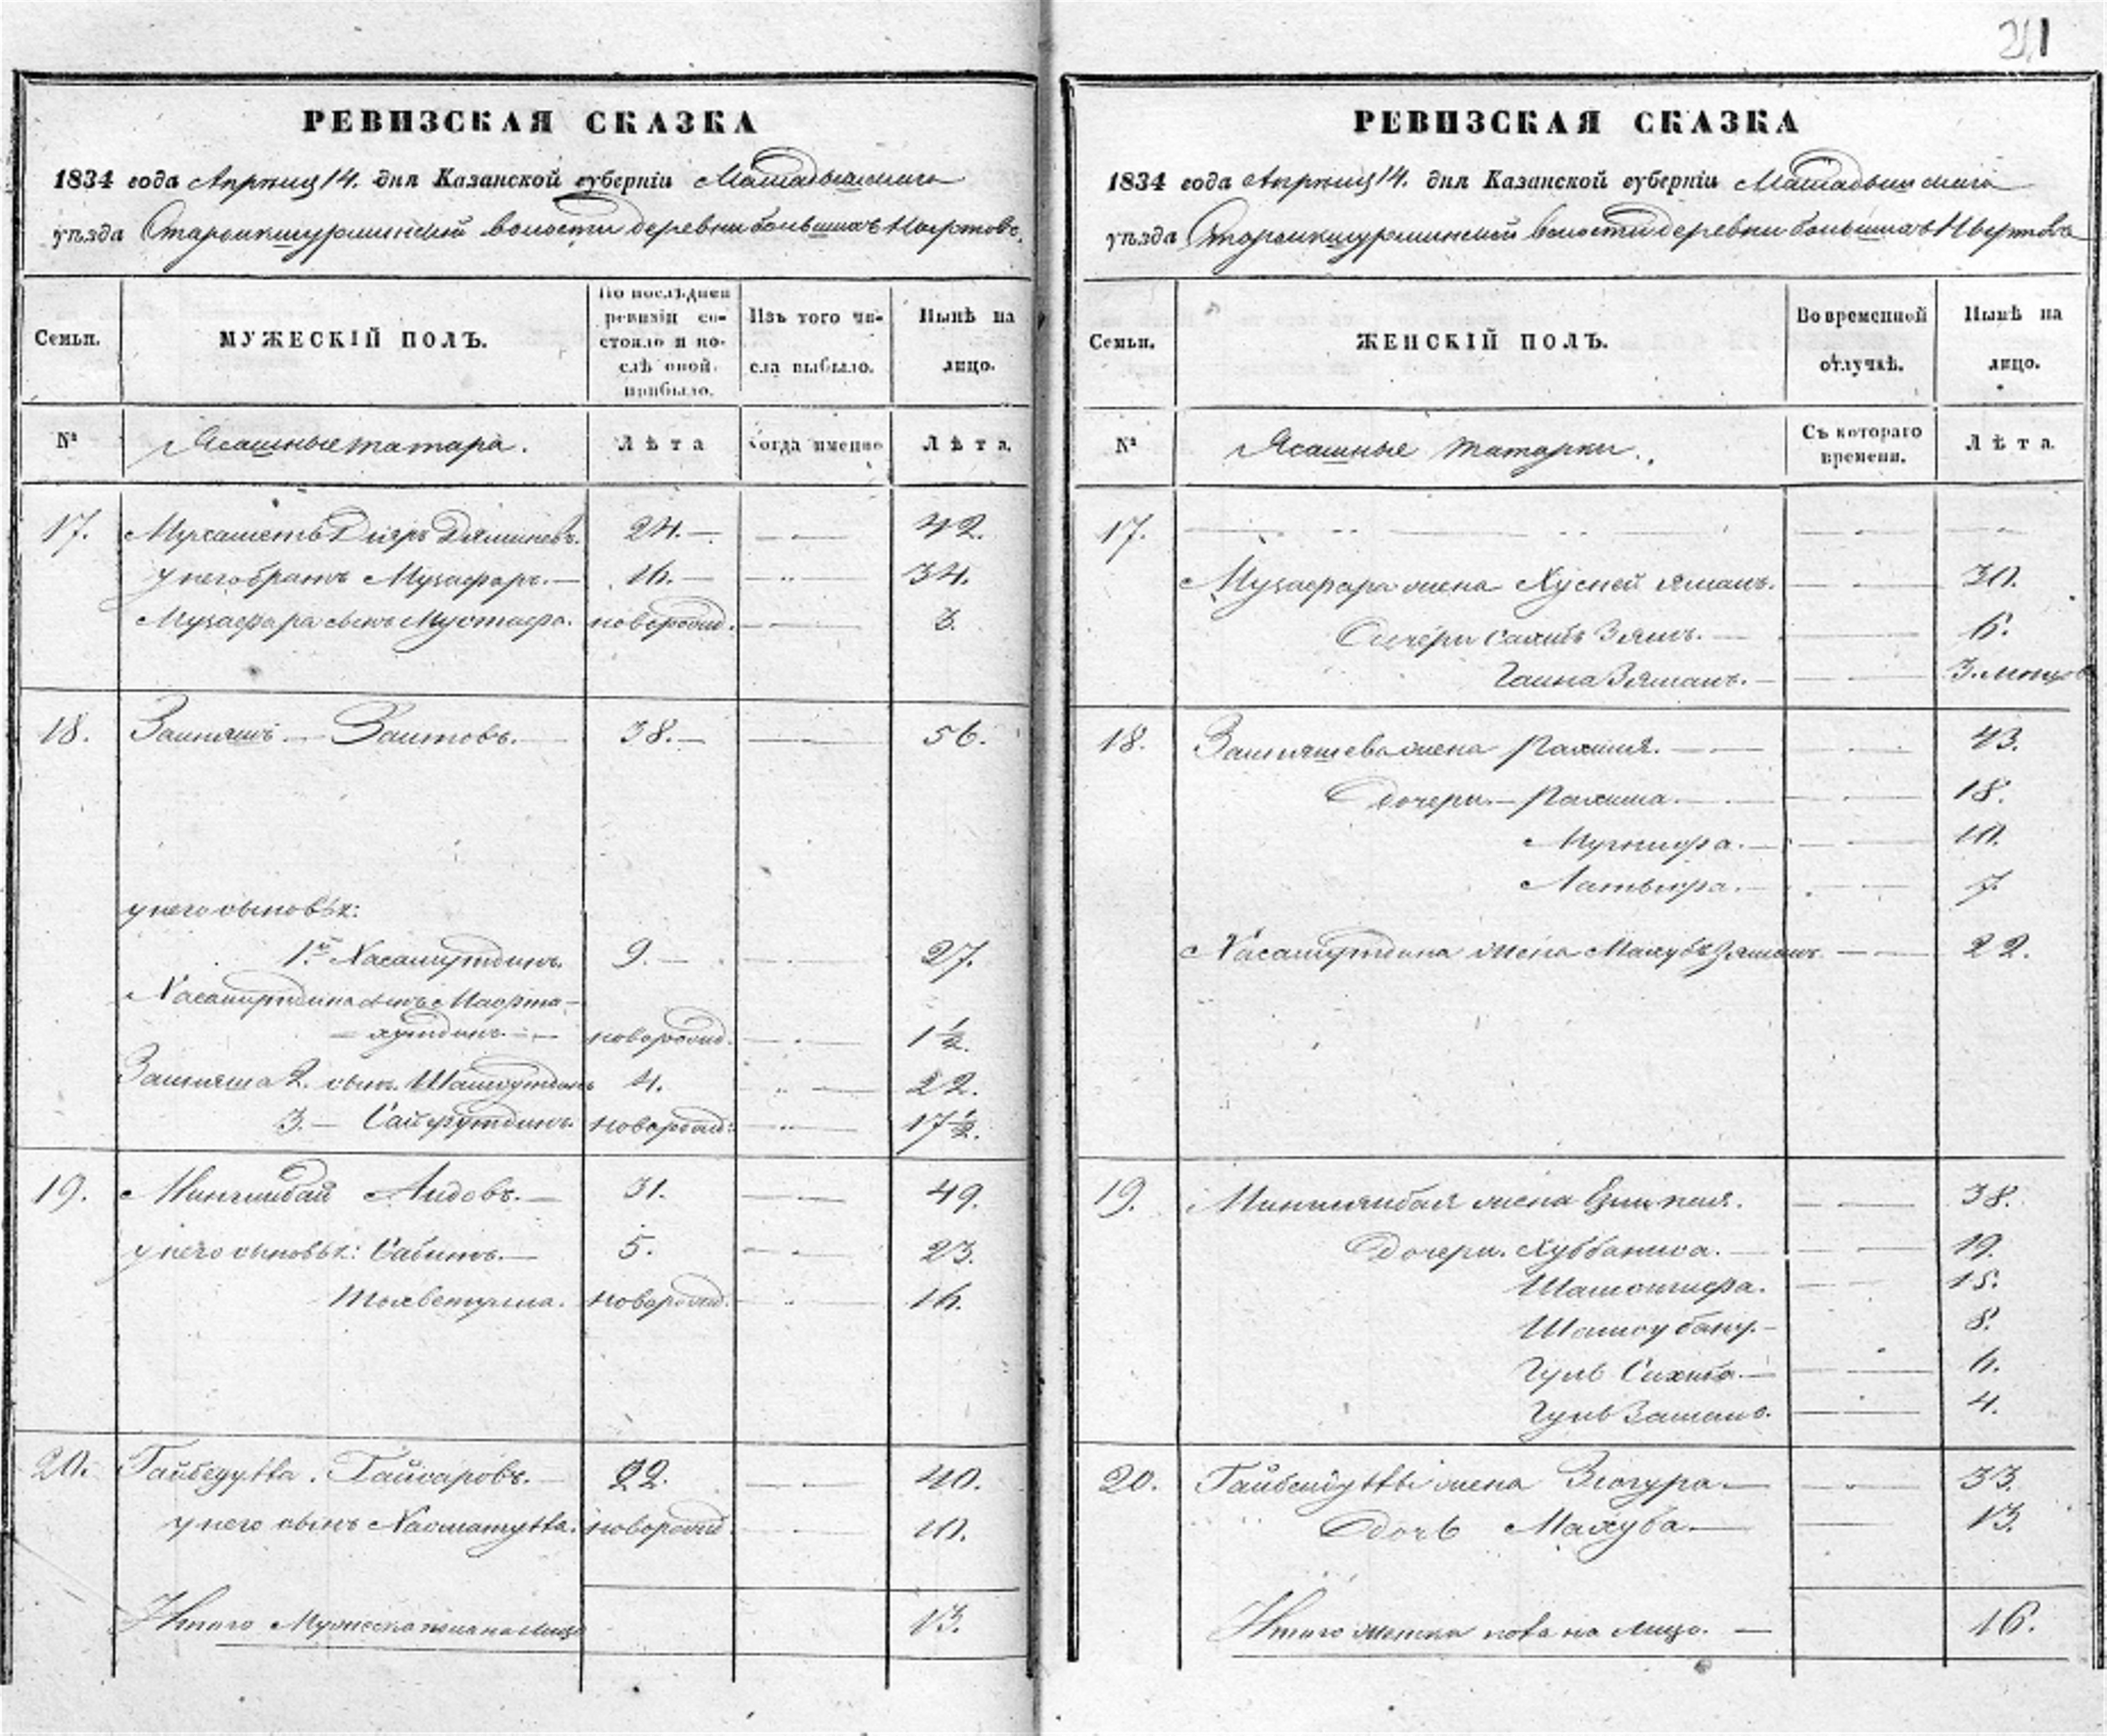 21
РЕВИЗСКАЯ СКАЗКА
1834 года Апрѣля 14. дня Казанской губерніи Мамадышскаго
уѣзда Староикшурминской волости деревни большихъ Ныртовъ
Семьи.
МУЖЕСКІЙ ПОЛЪ.
По послѣдней ревизіи состояло и послѣ оной прибыло.
Изъ того числа выбыло.
Нынѣ на лицо.
№
Ясашные татара.
Лѣта
Когда именно
Лѣта.
17. Мухаметь Диярь 24. 42.
у него братъ Музафаръ. 16. 34.
Музафара сынъ Мустафа. новорожд. 3.
18. Заитовъ. 38. 56.
у него сыновья:
1й Хасамутдинъ. 9. 27.
Хасамутдина сынъ Мифта-
хутдинъ. новорожд. 1½.
2. сынъ Шамсутдинъ 4. 22.
3. Сайфутдинъ. новорожд: 17½.
19. Минлибай Аидовъ. 31. 49.
у него сыновья: Сабитъ. 5. 23.
новорожд. 16.
20. Гайбедулла. Гайсаровъ. 22. 40.
у него сынъ Насматулла. новорожд. 10.
Итого Мужеска пола на лицо 13.
РЕВИЗСКАЯ СКАЗКА
1834 года Апрѣля 14. дня Казанской губерніи Мамадышскаго
уѣзда Староикшурминской волости деревни большихъ Ныртовъ
Семьи.
ЖЕНСКІЙ ПОЛЪ.
Во временной отлучкѣ.
Нынѣ на лицо.
№
Ясашные татарки.
Съ котораго времени.
Лѣта
17.
Музафара жена Хусней 30.
дочери Сахибь 6.
3. мѣсяцовъ
18. жена Рахимя. 43.
Дочери Рахима. 18.
10.
Латыфа. 7.
Хасамутдина жена Махубъ 22.
19. жена 38.
Дочери. Хуббаниса. 19.
15.
Шамсубану. 8.
Гуль Сахиба. 6.
Гуль Заманъ. 4.
20. Гайбейдуллы жена Зюгура 33.
Дочь Махуба 13.
Итого женска пола на лицо. 16.